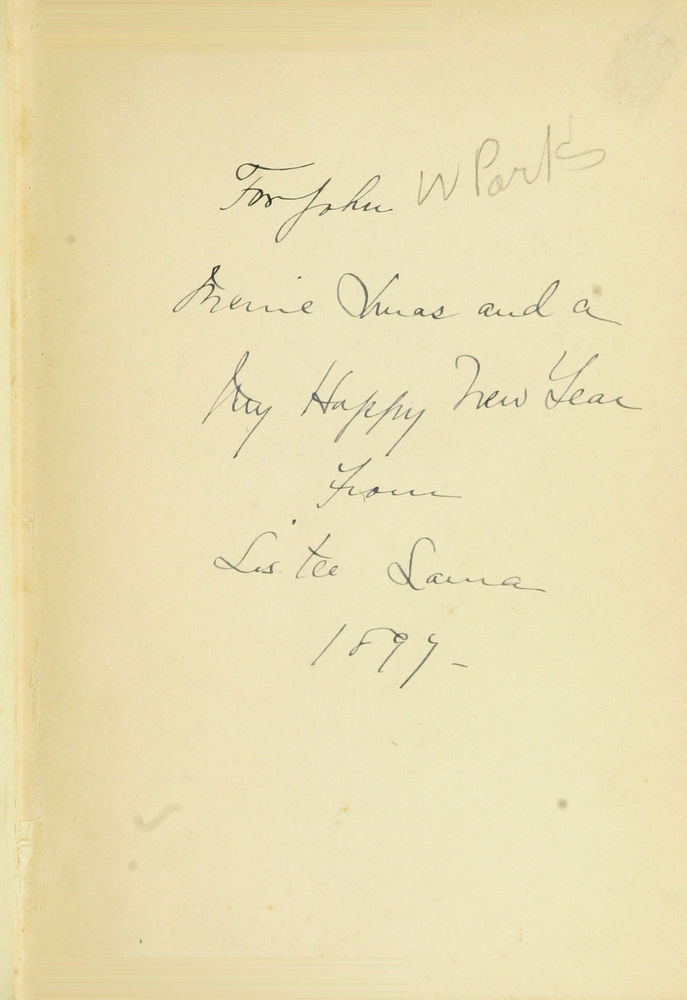 For John W Parks
Merrie Xmas and a
Happy New Year
From
Laura
1897-